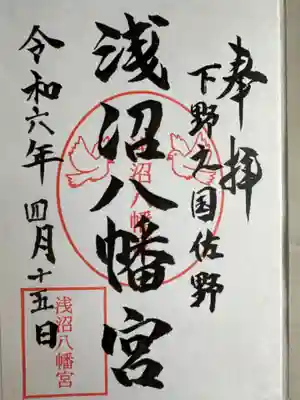 奉拝
下野之国佐野
浅沼八幡宮
令和六年四月十五日
浅沼八幡
浅沼八幡宮